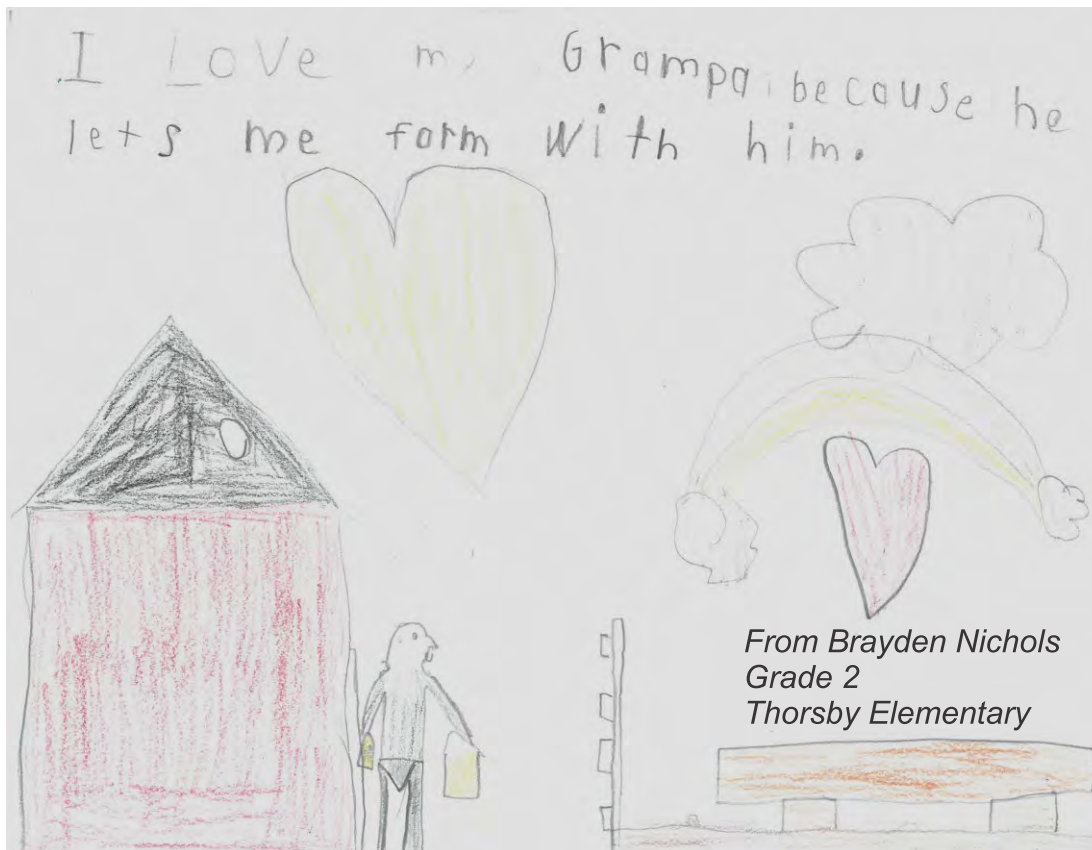 I Love m Grampa because he
lets me farm with him.
From Brayden Nichols
Grade 2
Thorsby Elementary